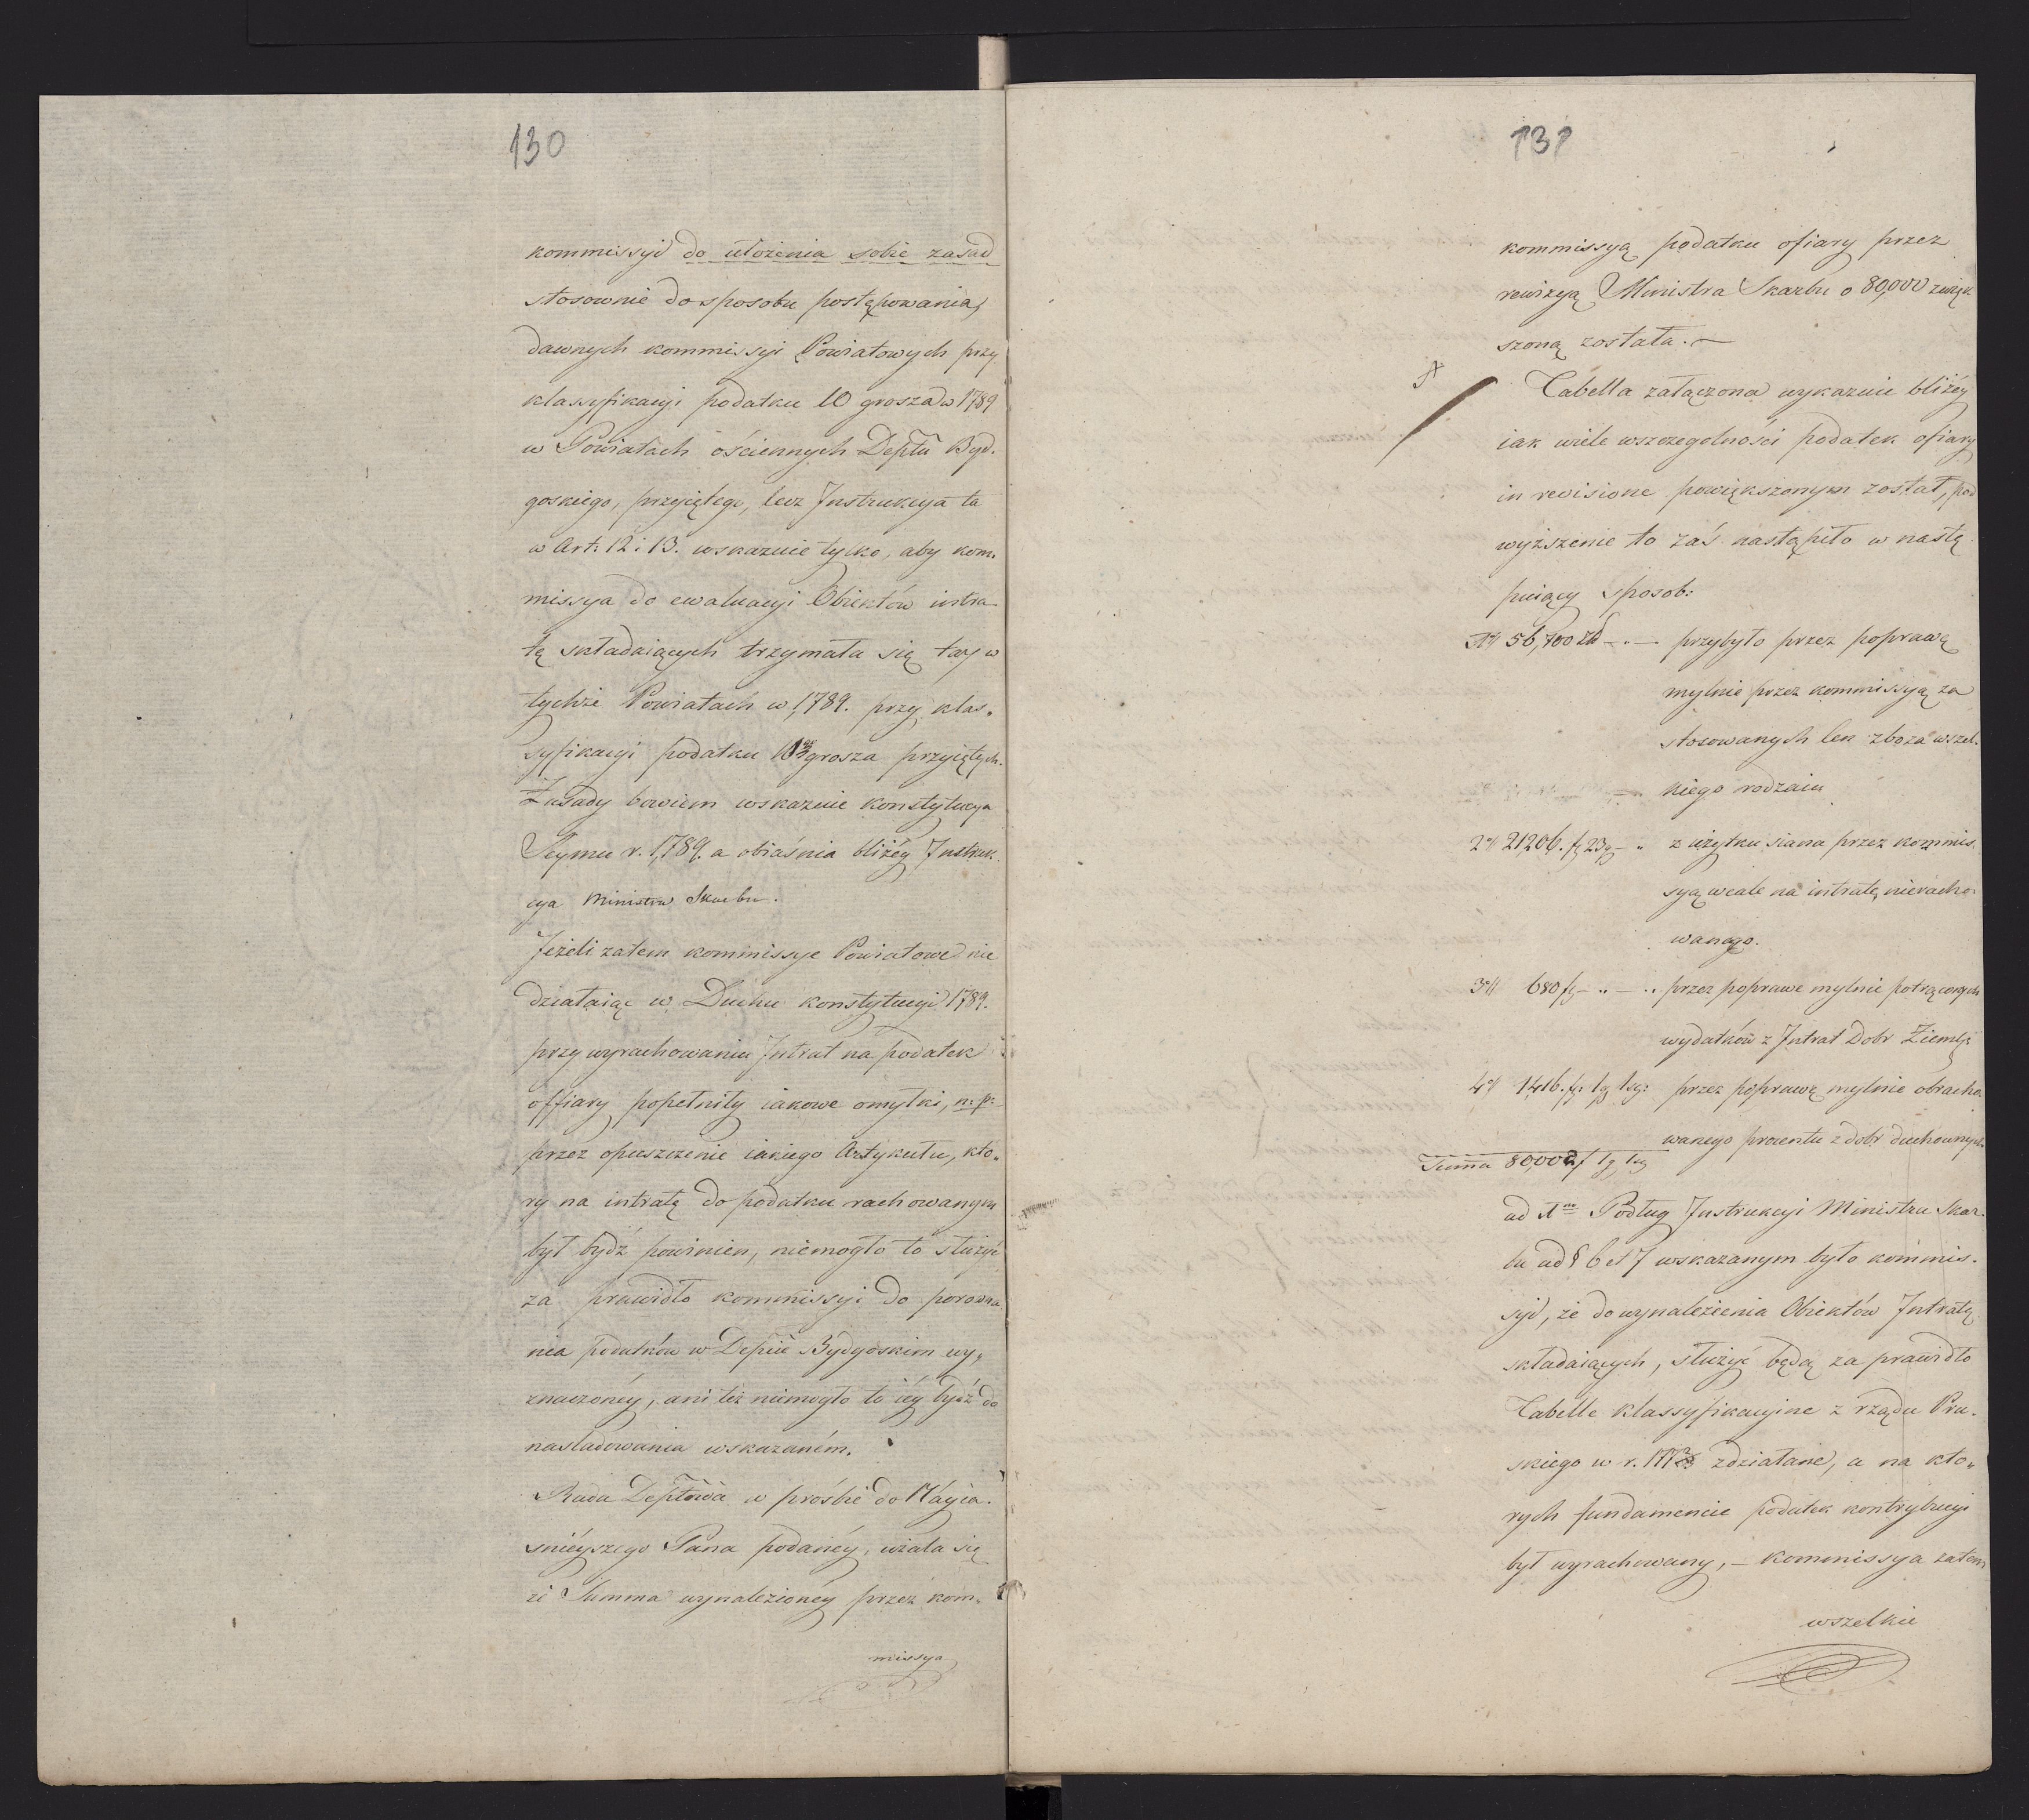 130
kommissyi do ułożenia sobie zasad
stosownie do sposobu postępowania,
dawnych kommissyi Powiatowych przy
klassyfikacyi podatku 10 grosza w 1789
w Powiatach ościennych Depttu Byd.
goskiego, przyiętego, lecz Instrukcya ta
w Art: 12 i 13. wskazuie tylko, aby kom.
missya do ewaluacyi Obiektów intra
tę składaiących trzymała się tax w
tychże Powiatach w 1789. przy klas„
syfikacyi podatku grosza przyiętych.
Zasady bowiem wskazuie konstytucya
Seymu r. 1789. a obiaśnia bliżéy Instruk
cya Ministra Skarbu.
Jeżeli zatem kommissye Powiatowe nie
działaiąc w Duchu konstytucyi 1789.
przy wyrachowaniu Intrat na podatek
offiary popełniły iakowe omyłki, n: p:
przez opuszczenie iakiego Artykułu, kto„
ry na intratę do podatku rachowanym
był bydź powinien, niemogło to służyć
za prawidło kommissyi do porowna
nia podatków w Depcie Bydgoskim wy„
znaczonéy, ani też niemogło to iéy bydź do
nasladowania wskazaném.
Rada Depttowa w prośbie do Nayia.
śnieyszego Pana podanéy, użala się
że Summa wynalezionéy przez kom„
missya
131
kommissyą podatku ofiary przez
rewizyą Ministra Skarbu o 80,000 zwięk
szoną została.
Tabella załączona wykazuie bliżéy
iak wiele wszczegolności podatek ofiary
in revisione powiększonym został, pod
wyższenie to zaś nastąpiło w nastę
puiący sposob:
1º/ 56,700 zł -..- przybyło przez poprawę
mylnie przez kommissyą za
stosowanych cen zboża wszel.
kiego rodzaiu
2º/ 21206. f 23 g - „ z użytku siana przez kommis
syą wcale na intratę nieracho
wanego.
3º/ 680 f - .. - .. przez poprawe mylnie potrąconych
wydatków z Intrat Dobr Ziems:
4º/ 1416. f: 1g 1sz: przez poprawę mylnie obracho.
wanego procentu z dobr duchownych.
Suma 80,00 f
ad 1m Podług Instrukcyi Ministra Skar.
bu ad § 6 et 7 wskazanym było kommis.
syi, że do wynalezienia Obiektów Intratę
składaiących, służyć będą za prawidło
Tabelle klassyfikacyine z rządu Pru.
skiego w r. zdziałane, a na kto„
rych fundamencie podatek kontrybucyi
był wyrachowany, - Kommissya zatem
wszelkie